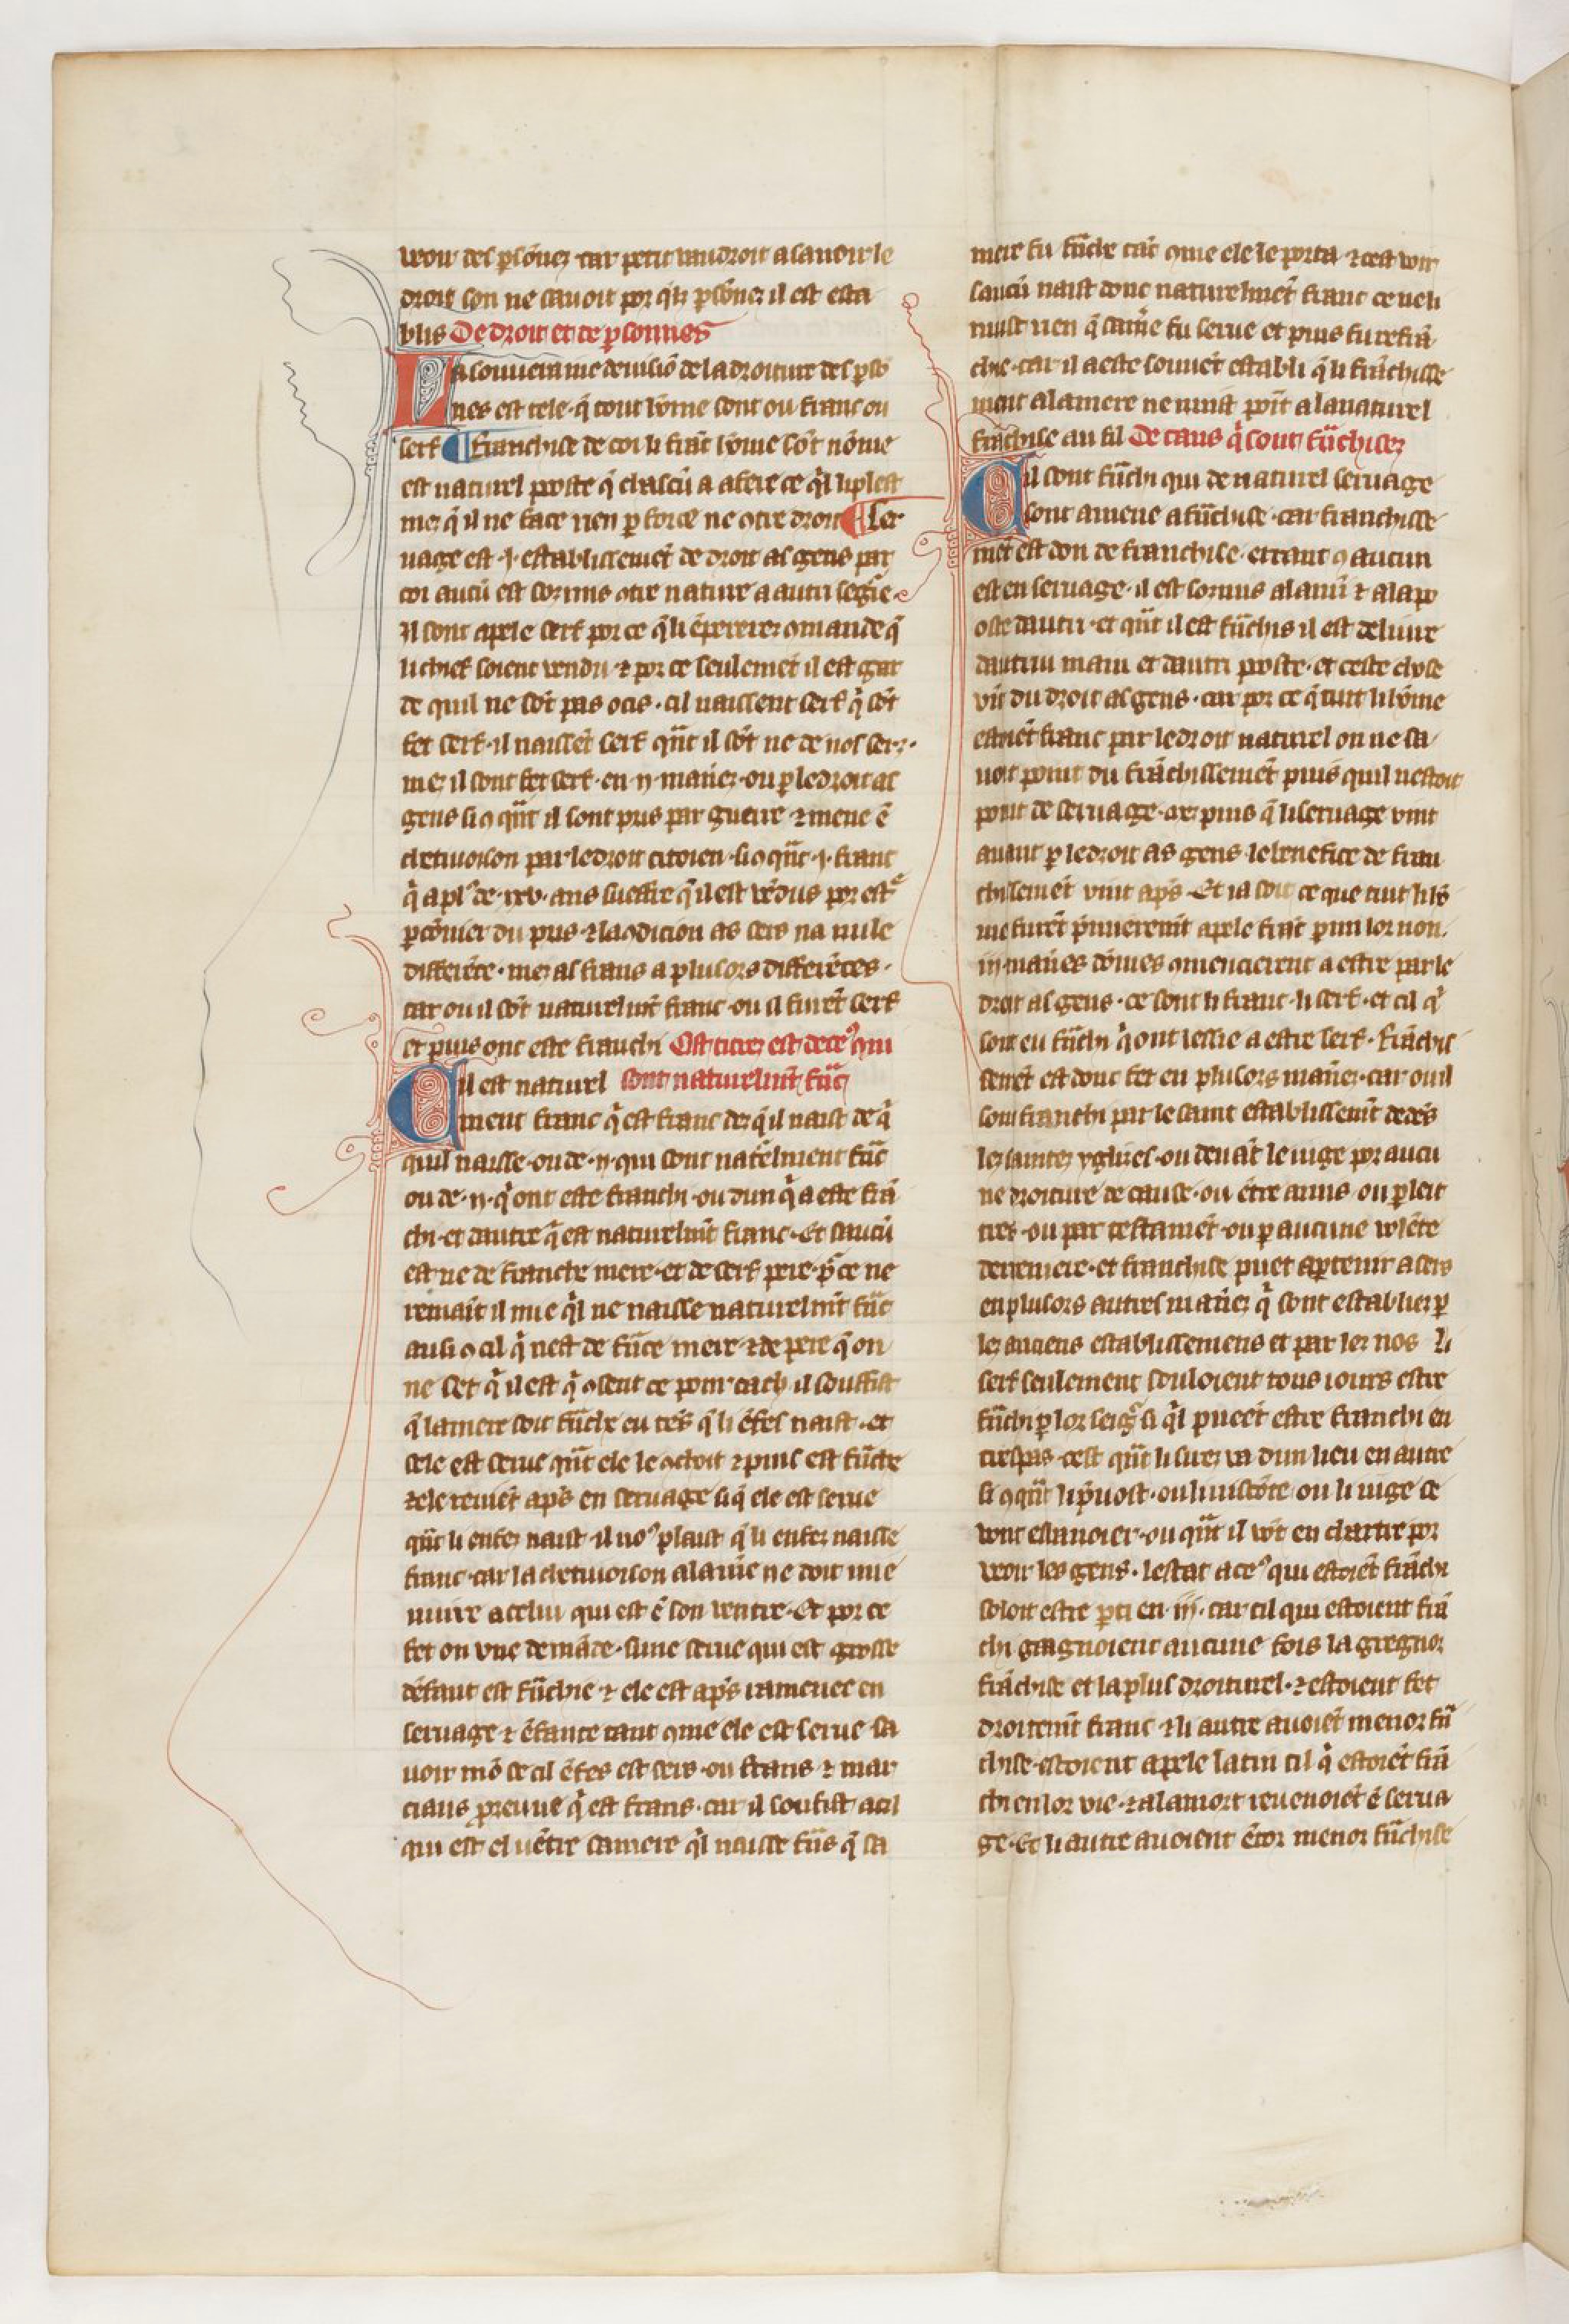 veoir des ꝑsones· car petit vaudroit a sauoir le
droit son ne sauoit por q̃lz ꝑsõnez il est esta
blis De droit et de ꝑsonnes
La souueraine deuisiõ de la droiture des ꝑso
nes est tele· q̃ tout hõme sont ou franc ou
serf ¶ franchise de coi li frãc hõme sõt nõme
est naturel poste q̃ chascũ a a fere ce q̃l li plest
mez q̃ il ne face rien ꝑ force ne ꝯtre droit ¶ Ser
uage est ·i· establissemẽt de droit as gens par
coi aucũ est sozmis ꝯtre nature a autri segñe
Il sont apele serf por ce q̃ li ẽpererez ꝯmande q̃
li chief soient vendu ⁊ por ce seulemẽt il est gar
de quil ne sõt pas ocis· cil naissent serf q̃ sõt
fet serf· il naissẽt serf qñt il sõt ne de nos sers·
mez il sont fet serf· en ·ii· mañiez· ou ꝑ le droit as
gens si ꝯ qñt il sont pris par guerre ⁊ mene ẽ
chetiuoison par le droit citoien· si ꝯ qñt ·i· franc
q̃ a plꝰ de ·xxv· ans sueffre q̃ il est vẽdus por estᵉ
ꝑcõnier du pris ⁊ la ꝯdicion as sers na nule
differẽce· mez as frans a plusors differẽces·
car ou il sõt naturelmt̃ franc· ou il furẽt serf
et puis ont este franchi Cist titrez est de ceꝰ qui
Cil est naturel sont naturelmt̃ frãc
ment franc q̃ est franc dez q̃ il naist de q̃
quil naisse· ou de ·ii· qui sont nat̃elment frãc
ou de ·ii· q̃ ont este franchi· ou dun q̃ a este frã
chi· et dautre q̃ est naturelmt̃ franc· Et saucũ
est ne de franche mere· et de serf pere· ꝑ ce ne
remaĩt il mie q̃l ne naisse naturelmt̃ frãc
ausi ꝯ cil q̃ nest de frãce mere· ⁊ de pere q̃ on
ne set q̃ il est q̃ ꝯsent ce poinr cach· il souffist
q̃ la mere soit frãche eu tẽs q̃ li ẽfes naist· et
sele est serue qñt ele le ꝯchoit ⁊ puis est frãche
⁊ ele reuiẽt apˢ en seruage si q̃ ele est serue
qñt li enfez naist· il noꝰ plaist q̃ li enfez naisse
franc· car la chetiuoison a la mẽe ne doit mie
nuire a celui qui est ẽ son ventre· Et por ce
fet on vne demãde· sune serue qui est grosse
dẽfant est frãchie ⁊ ele est apˢ ramenee en
seruage ⁊ ẽfante tant ꝯme ele est serue sa
uoir mõ se cil ẽfes est sers· ou frans ⁊ mar
cians ꝓreuue q̃ est frans· car il soufist a cil
qui est el uẽtre sa mere q̃l naisse frãs q̃ sa
mere fu frãche tãt ꝯme ele le porta· ⁊ cest voir
saucũ naist donc naturelmẽt franc ce ne li
nuist rien q̃ sa mẽe fu serue et puis fu refrã
chie· car il a este souuẽt establi q̃ li frãchisse
ment a la mere ne nuist poĩt a la naturel
frãchise au fil De caus q̃ sont frãchisez
Cil sont frãchi qui de naturel seruage
sont amene a frãchise· car franchisse
mẽt est don de franchise· et tant ꝯ aucun
est en seruage· il est sozmis a la maĩ ⁊ a la po
oste dautri· et qñt il est frãchis il est deliure
dautrui main et dautri poste· et ceste chose
vĩt du droit as gens· car por ce q̃ tuit li hõme
estoiẽt franc par le droit naturel on ne sa
uoit point du frãchissemẽt puis quil nestoit
point de seruage· mez puis q̃ li seruage vint
auant ꝑ le droit as gens· le benefice de fran
chisemẽt vint apˢ· Et ia soit ce que tuit li hõ
me furẽt p̃mieremt̃ apele frãc p un lor non·
·iii· mañes dõmes ꝯmencierent a estre par le
droit as gens· ce sont li franc· li serf· et cil q̃
sont eu frãchi q̃ ont lessie a estre serf· Frãchis
semẽt est donc fet en plusors mañez· car ou il
sont franchi par le saint establissemt̃ de dẽs
lez saintez yglisez· ou deuãt le iuge por aucu
ne droiture de cause· ou ẽtre amis· ou ꝑ lett
tres· ou par testamẽt· ou ꝑ aucune volẽte
derreniere· et franchise puet aꝑtenir a sers
en plusors autres mañiez q̃ sont establiez ꝑ
lez anciens establissemens et par lez nos Li
serf seulement souloient tous iours estre
frãchi ꝑ lor seigᵉ· si q̃l pueẽt estre franchi en
trespas· cest qñt li sirez va dun lieu en autre
si ꝯ qñt li puost· ou li uiscõte· ou li iuge se
vont esbanoier· ou qñt il võt en chartre por
veoir les gens· lestat a ceꝰ qui estoiẽt frãchi
soloit estre ꝑti en ·iii· car cil qui estoient frã
chi gaagnoient aucune fois la gregnor
frãchise et la plus droiturel· ⁊ estoient fet
droitemt̃ franc ⁊ li autre auoiẽt menor frã
chise· estoient apele latin cil q̃ estoiẽt frã
chi en lor vie· ⁊ a la mort reuenoiẽt ẽ serua
ge· Et li autre auoient ẽcor menor frãchise